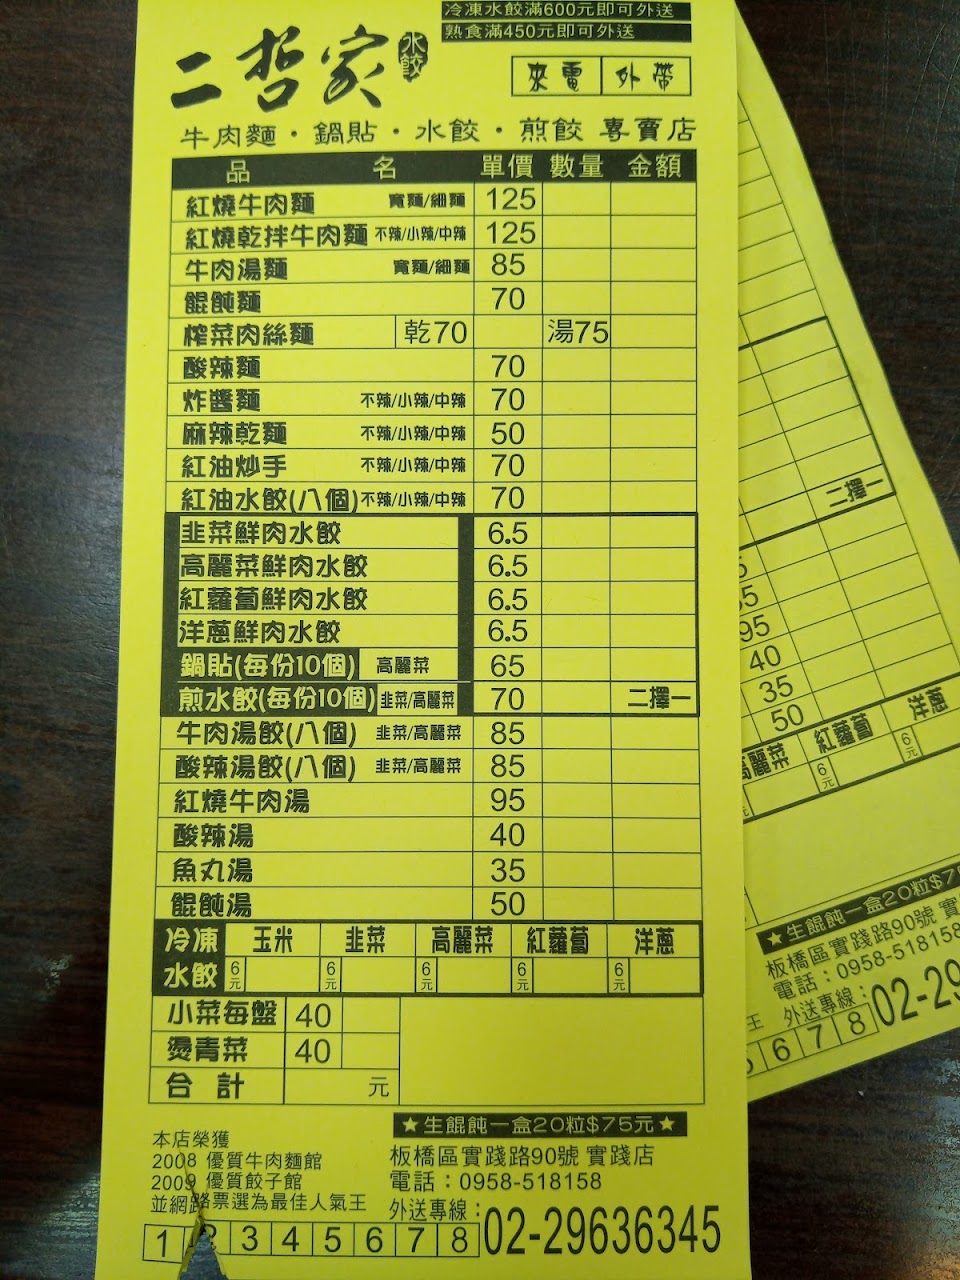 冷凍水餃滿600元即可外送
熟食滿450元即可外送
二哲家 水餃
來電 外帶
牛肉麵・鍋貼・水餃・煎餃 專賣店
品名 單價 數量 金額
紅燒牛肉麵 寬麵/細麵 125
紅燒乾拌牛肉麵 不辣/小辣/中辣 125
牛肉湯麵 寬麵/細麵 85
餛飩麵 70
榨菜肉絲麵 乾70 湯75
酸辣麵 70
炸醬麵 不辣/小辣/中辣 70
麻辣乾麵 不辣/小辣/中辣 50
紅油炒手 不辣/小辣/中辣 70
紅油水餃(八個) 不辣/小辣/中辣 70
韭菜鮮肉水餃 6.5
高麗菜鮮肉水餃 6.5
紅蘿蔔鮮肉水餃 6.5
洋蔥鮮肉水餃 6.5
鍋貼(每份10個) 高麗菜 65
煎水餃(每份10個) 韭菜/高麗菜 70 二擇一
牛肉湯餃(八個) 韭菜/高麗菜 85
酸辣湯餃(八個) 韭菜/高麗菜 85
紅燒牛肉湯 95
酸辣湯 40
魚丸湯 35
餛飩湯 50
冷凍水餃 玉米 韭菜 高麗菜 紅蘿蔔 洋蔥
6元 6元 6元 6元 6元
小菜每盤 40
燙青菜 40
合計 元
★生餛飩一盒20粒$75元★
本店榮獲
2008 優質牛肉麵館
2009 優質餃子館
並網路票選為最佳人氣王
板橋區實踐路90號 實踐店
電話：0958-518158
外送專線：02-29636345
1 3 4 5 6 7 8
二擇一
5
95
40
35
50
高麗菜 紅蘿蔔 洋蔥
6元 6元
★生餛飩一盒20粒$75
板橋區實踐路90號 實
電話：0958-518158
外送專線：02-29
王
5 6 7 8